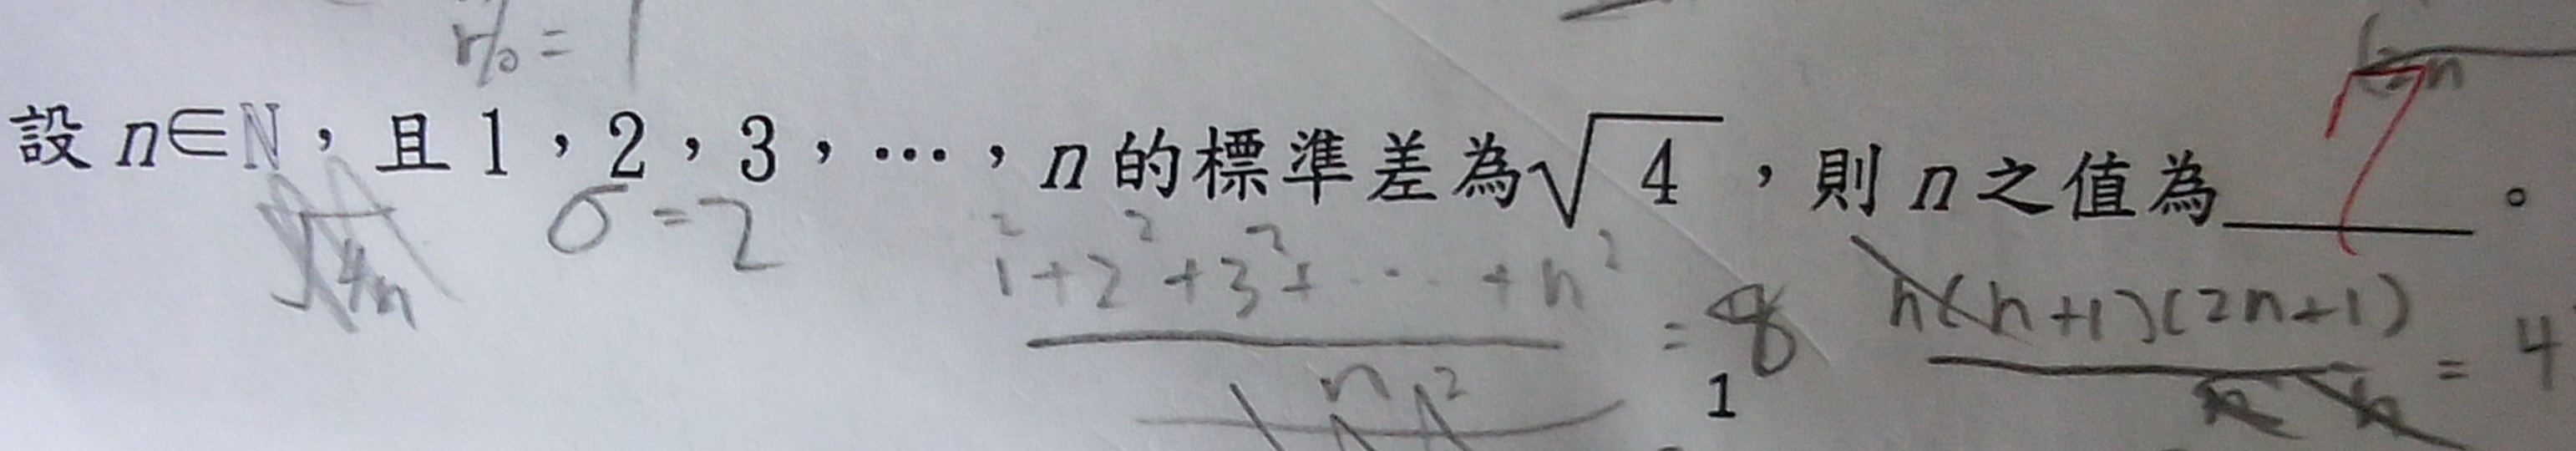 r/0 = 1
設 n∈N，且 1，2，3，…，n 的標準差為√4，則 n 之值為 7 。
σ = 2
1²+2²+3²+ … + n² = 8 n(n+1)(2n+1) = 4
n
1